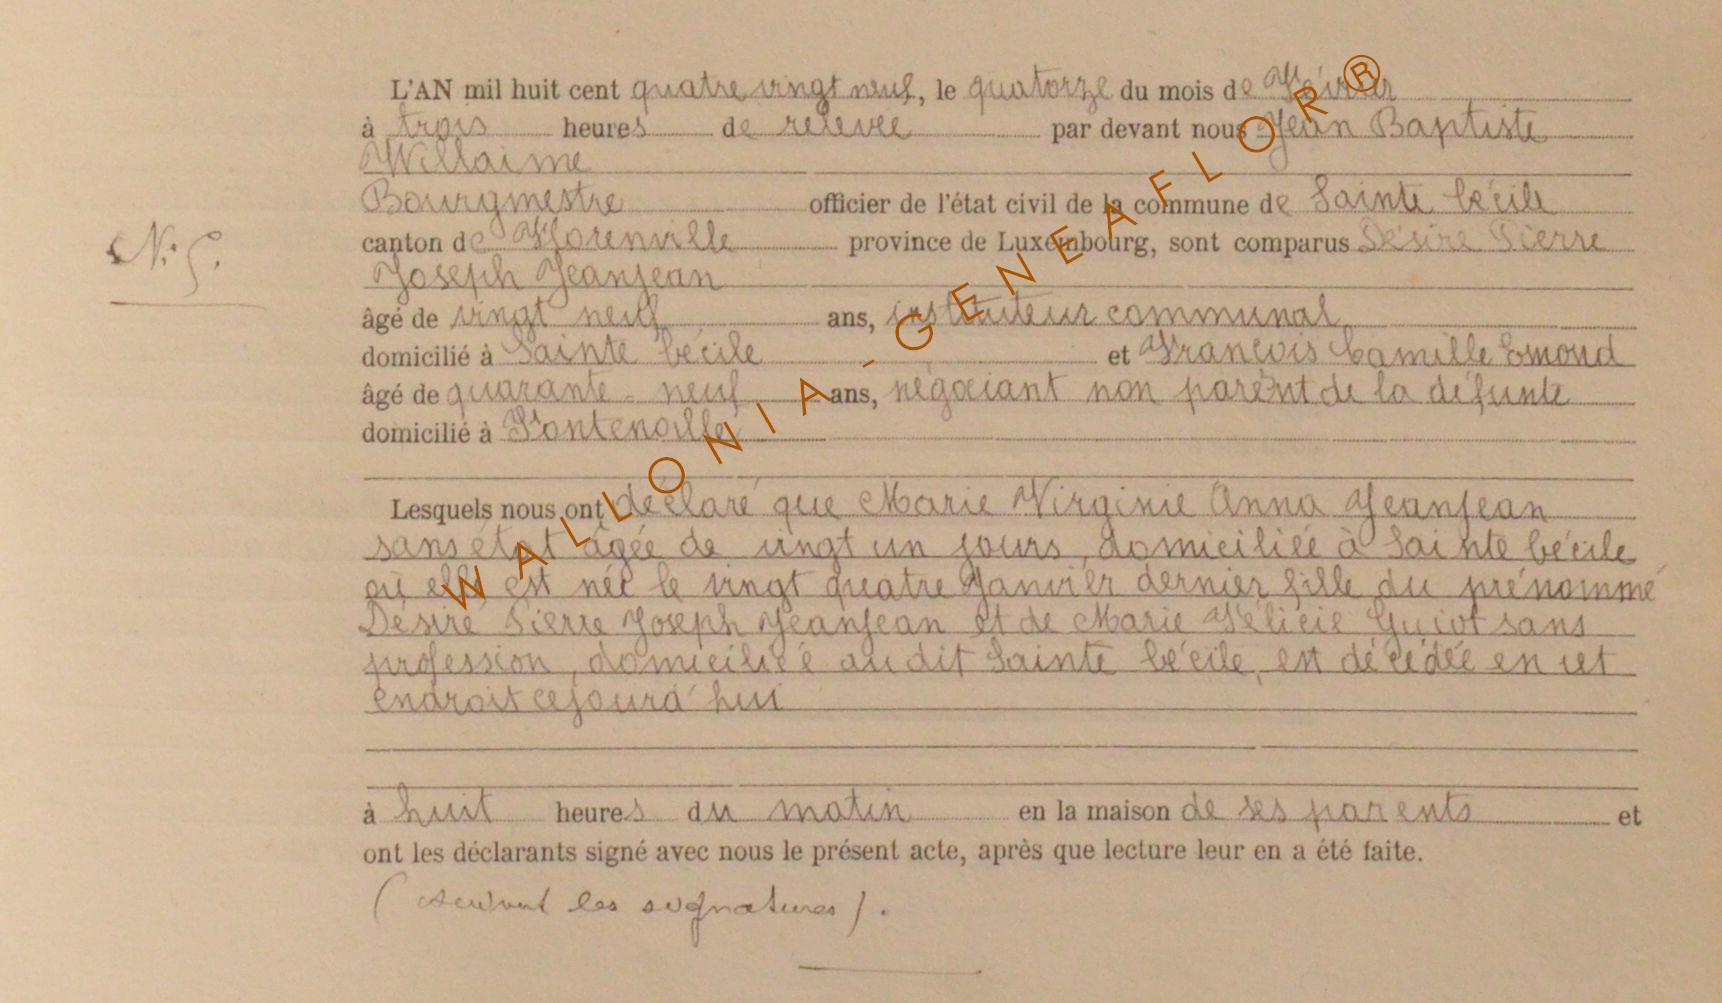 L'AN mil huit cent quatre vingt neuf, le quatorze du mois de Février
à trois heures de relevée par devant nous Jean Baptiste
Willaime
Bourgmestre officier de l'état civil de la commune de Sainte Cécile
N° 5. canton de Florenville province de Luxembourg, sont comparus Désiré Pierre
Joseph Jeanjean
âgé de vingt neuf ans, instituteur communal
domicilié à Sainte Cécile et François Camille Emond
âgé de quarante-neuf ans, négociant non parent de la défunte
domicilié à Fontenoille
Lesquels nous ont déclaré que Marie Virginie Anna Jeanjean
sans état agée de vingt un jours, domiciliée à Sainte Cécile
où elle est née le vingt quatre Janvier dernier fille du prénommé
Désiré Pierre Joseph Jeanjean et de Marie Félicie Guiot sans
profession, domiciliée au dit Sainte Cécile, est décédée en cet
endroit cejourd'hui
à huit heures du matin en la maison de ses parents et
ont les déclarants signé avec nous le présent acte, après que lecture leur en a été faite.
(suivent les signatures).
WALLONIA-GENEAFLOR®